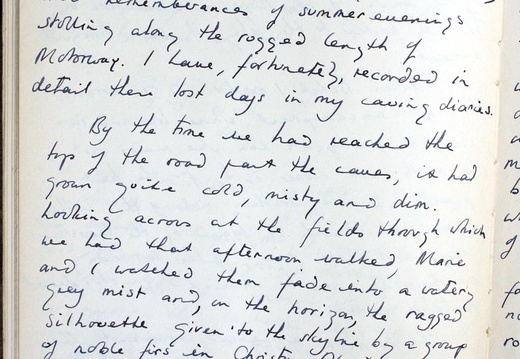 rememberances of summer evenings
strolling along the rugged length of
Motorway. I have, fortunately, recorded in
detail these lost days in my caving diaries.
By the time we had reached the
top of the road past the caves, it had
grown quite cold, misty and dim.
Looking across at the fields through which
we had that afternoon walked, Marie
and I watched them fade into a watery
grey mist and, on the horizon, the ragged
silhouette given to the skyline by a group
of noble firs in